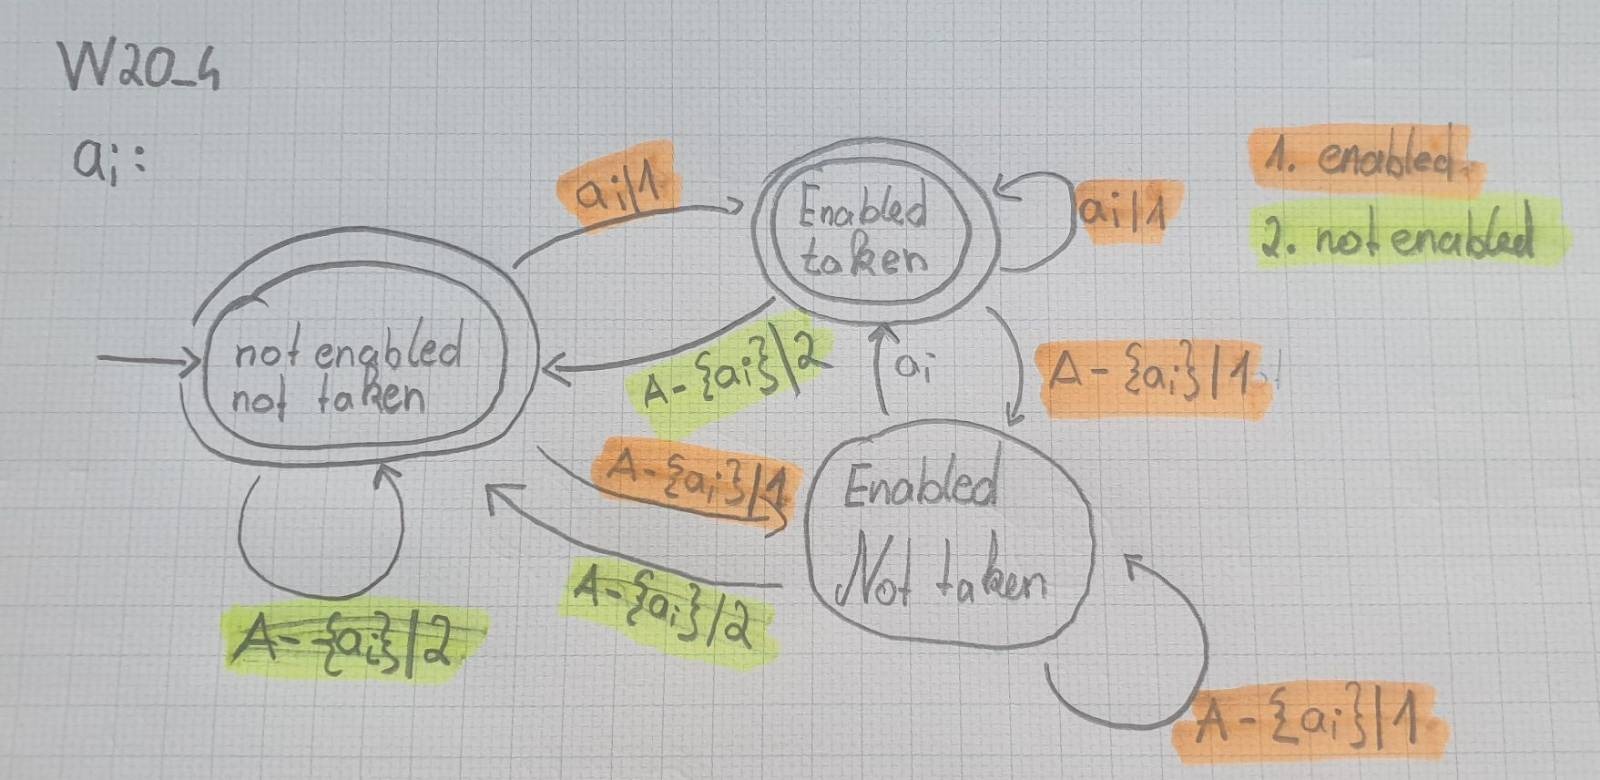 W20_4
ai:
ai|1
Enabled
taken
ai|1
1. enabled
2. not enabled
not enabled
not taken
A-{ai}|2
ai
A-{ai}|1
A-{ai}|1
Enabled
Not taken
A-{ai}|2
A-{ai}|2
A-{ai}|1